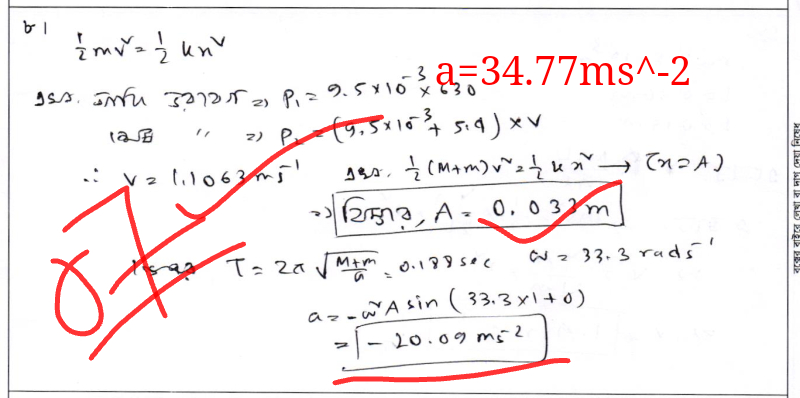 ৮।
½mv² = ½ kx²
a=34.77ms^-2
P₁ = 9.5×10⁻³ × 630
" ⇒ P₂ = (9.5×10⁻³ + 5.4) × v
∴ v = 1.1063 ms⁻¹ ½ (M+m) v² = ½ k x² → (x = A)
⇒ বিস্তার, A = 0.033 m
07
T = 2π √(M+m/a) = 0.188 sec ω = 33.3 rads⁻¹
a = -ω²A sin (33.3×1+0)
= -20.09 ms⁻²
বক্সের বাইরে লেখা বা দাগ দেয়া নিষেধ